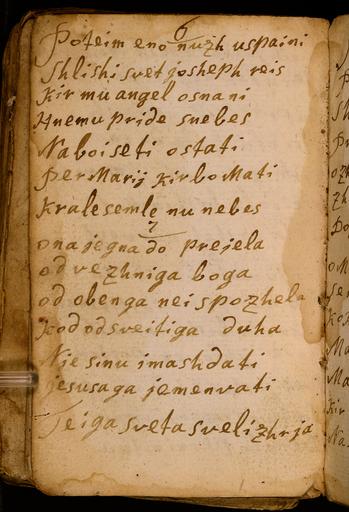 6
Poteim eno nuzh uspaini
Shlishi svet josheph reis
Kir mu angel osnani
Hnemu pride snebes
Naboi se ti ostati
per Marij kir bo Mati
Krale semle nu nebes
7
ona je gna do prejela
od vezhniga boga
od obenga nei spozhela
kod od sveitiga duha
Nje sinu imash dati
jesusa ga jemenvati
Te iga sveta svelizhrja